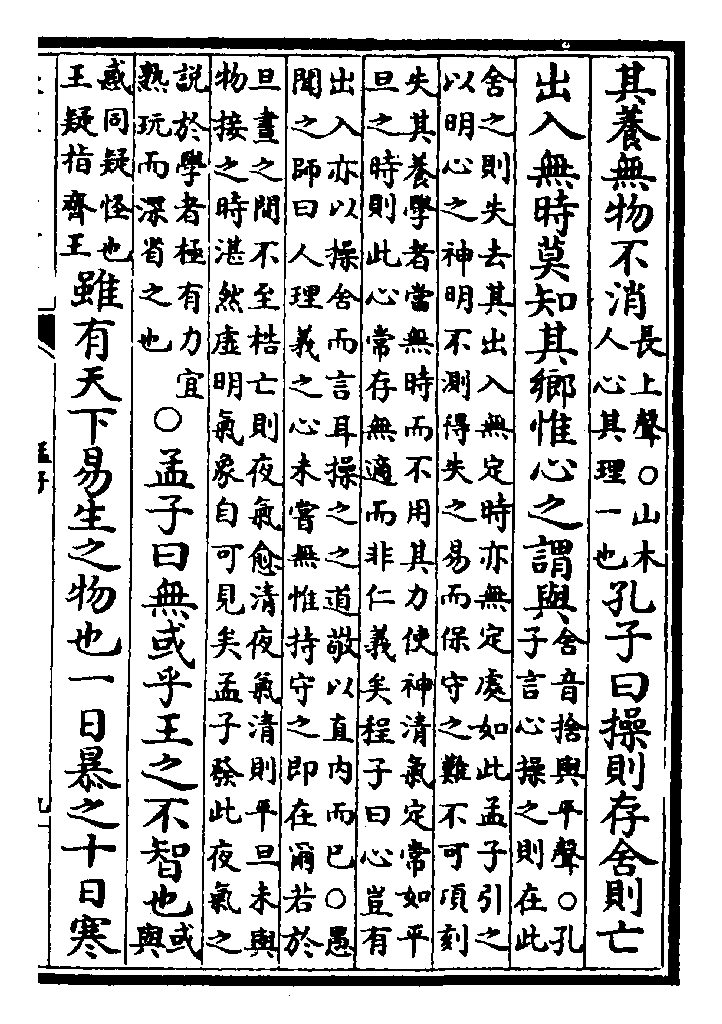 其養無物不消長上聲○山木人心其理一也孔子曰操則存舍則亡
出入無時莫知其鄉惟心之謂與舍音捨與平聲○孔子言心操之則在此
舍之則失去其出入無定時亦無定處如此孟子引之
以明心之神明不測得失之易而保守之難不可頃刻
失其養學者當無時而不用其力使神清氣定常如平
旦之時則此心常存無適而非仁義矣程子曰心豈有
出入亦以操舍而言耳操之之道敬以直内而已○愚
聞之師曰人理義之心未嘗無惟持守之即在爾若於
旦晝之間不至梏亡則夜氣愈清夜氣清則平旦未與
物接之時湛然虛明氣象自可見矣孟子發此夜氣之
說於學者極有力宜熟玩而深省之也○孟子曰無或乎王之不智也或與
惑同疑怪也王疑指齊王雖有天下易生之物也一日暴之十日寒